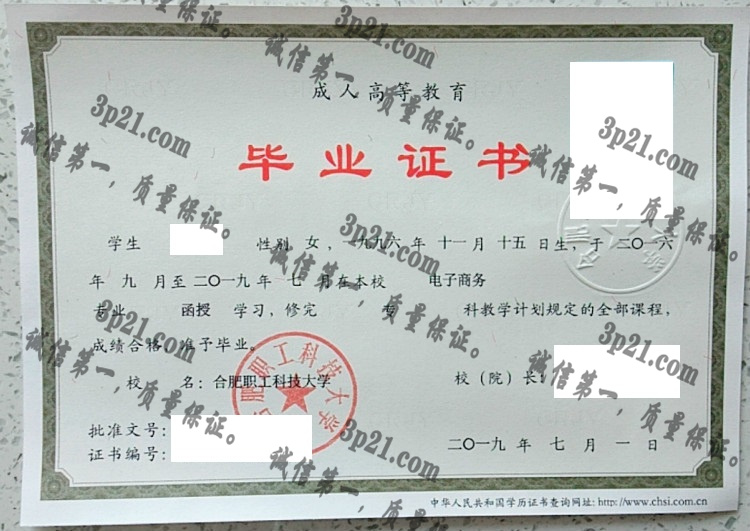 成人高等教育
毕业证书
学生 性别 女，一九九六年 十一月 十五日生，于二〇一六
年 九 月至二〇一九年 七 月在本校 电子商务
专业 函授 学习，修完 专 科教学计划规定的全部课程，
成绩合格，准予毕业。
校 名：合肥职工科技大学 校（院）长：
合肥职工科技大学
批准文号：
证书编号：
二〇一九年 七 月 一 日
中华人民共和国学历证书查询网址: http://www.chsi.com.cn
3p21.com
诚信第一，质量保证。
3p21.com
诚信第一，质量保证。
3p21.com
诚信第一，质量保证。
3p21.com
诚信第一，质量保证。
3p21.com
诚信第一，质量保证。
3p21.com
诚信第一，质量保证。
3p21.com
诚信第一，质量保证。